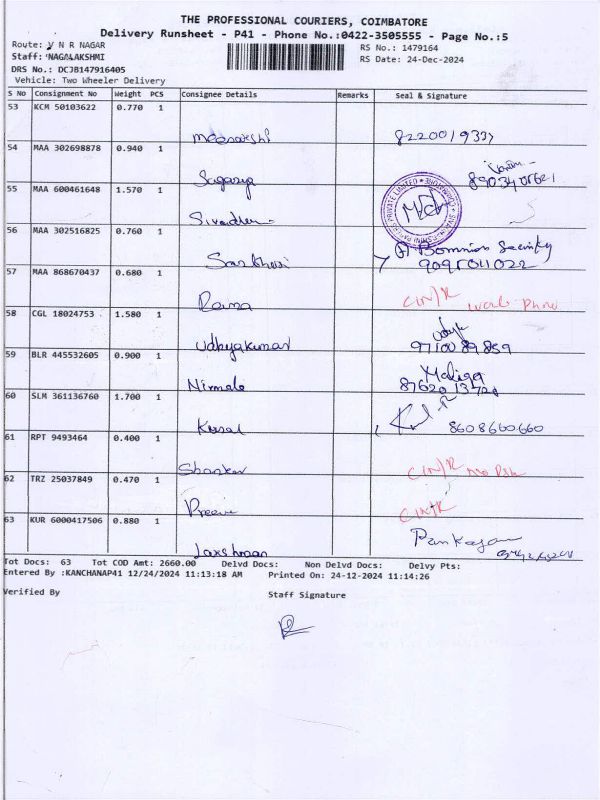 THE PROFESSIONAL COURIERS, COIMBATORE
Delivery Runsheet - P41 - Phone No.:0422-3505555 - Page No.:5
Route: V N R NAGAR
RS No.: 1479164
Staff: NAGALAKSHMI
RS Date: 24-Dec-2024
DRS No.: DCJB147916405
Vehicle: Two Wheeler Delivery
S No Consignment No Weight PCS Consignee Details Remarks Seal & Signature
53 KCM 50103622 0.770 1
Meenakshi 8220019337
54 MAA 302698878 0.940 1
55 MAA 600461648 1.570 1
56 MAA 302516825 0.760 1
9095011022
57 MAA 868670437 0.680 1
Rama
58 CGL 18024753 1.580 1
Udhayakumar 9710089859
59 BLR 445532605 0.900 1
Nirmala
60 SLM 361136760 1.700 1
8608660660
61 RPT 9493464 0.400 1
Shankar
62 TRZ 25037849 0.470 1
63 KUR 6000417506 0.880 1
Tot Docs: 63 Tot COD Amt: 2660.00 Delvd Docs: Non Delvd Docs: Delvy Pts:
Entered By :KANCHANAP41 12/24/2024 11:13:18 AM Printed On: 24-12-2024 11:14:26
Verified By Staff Signature